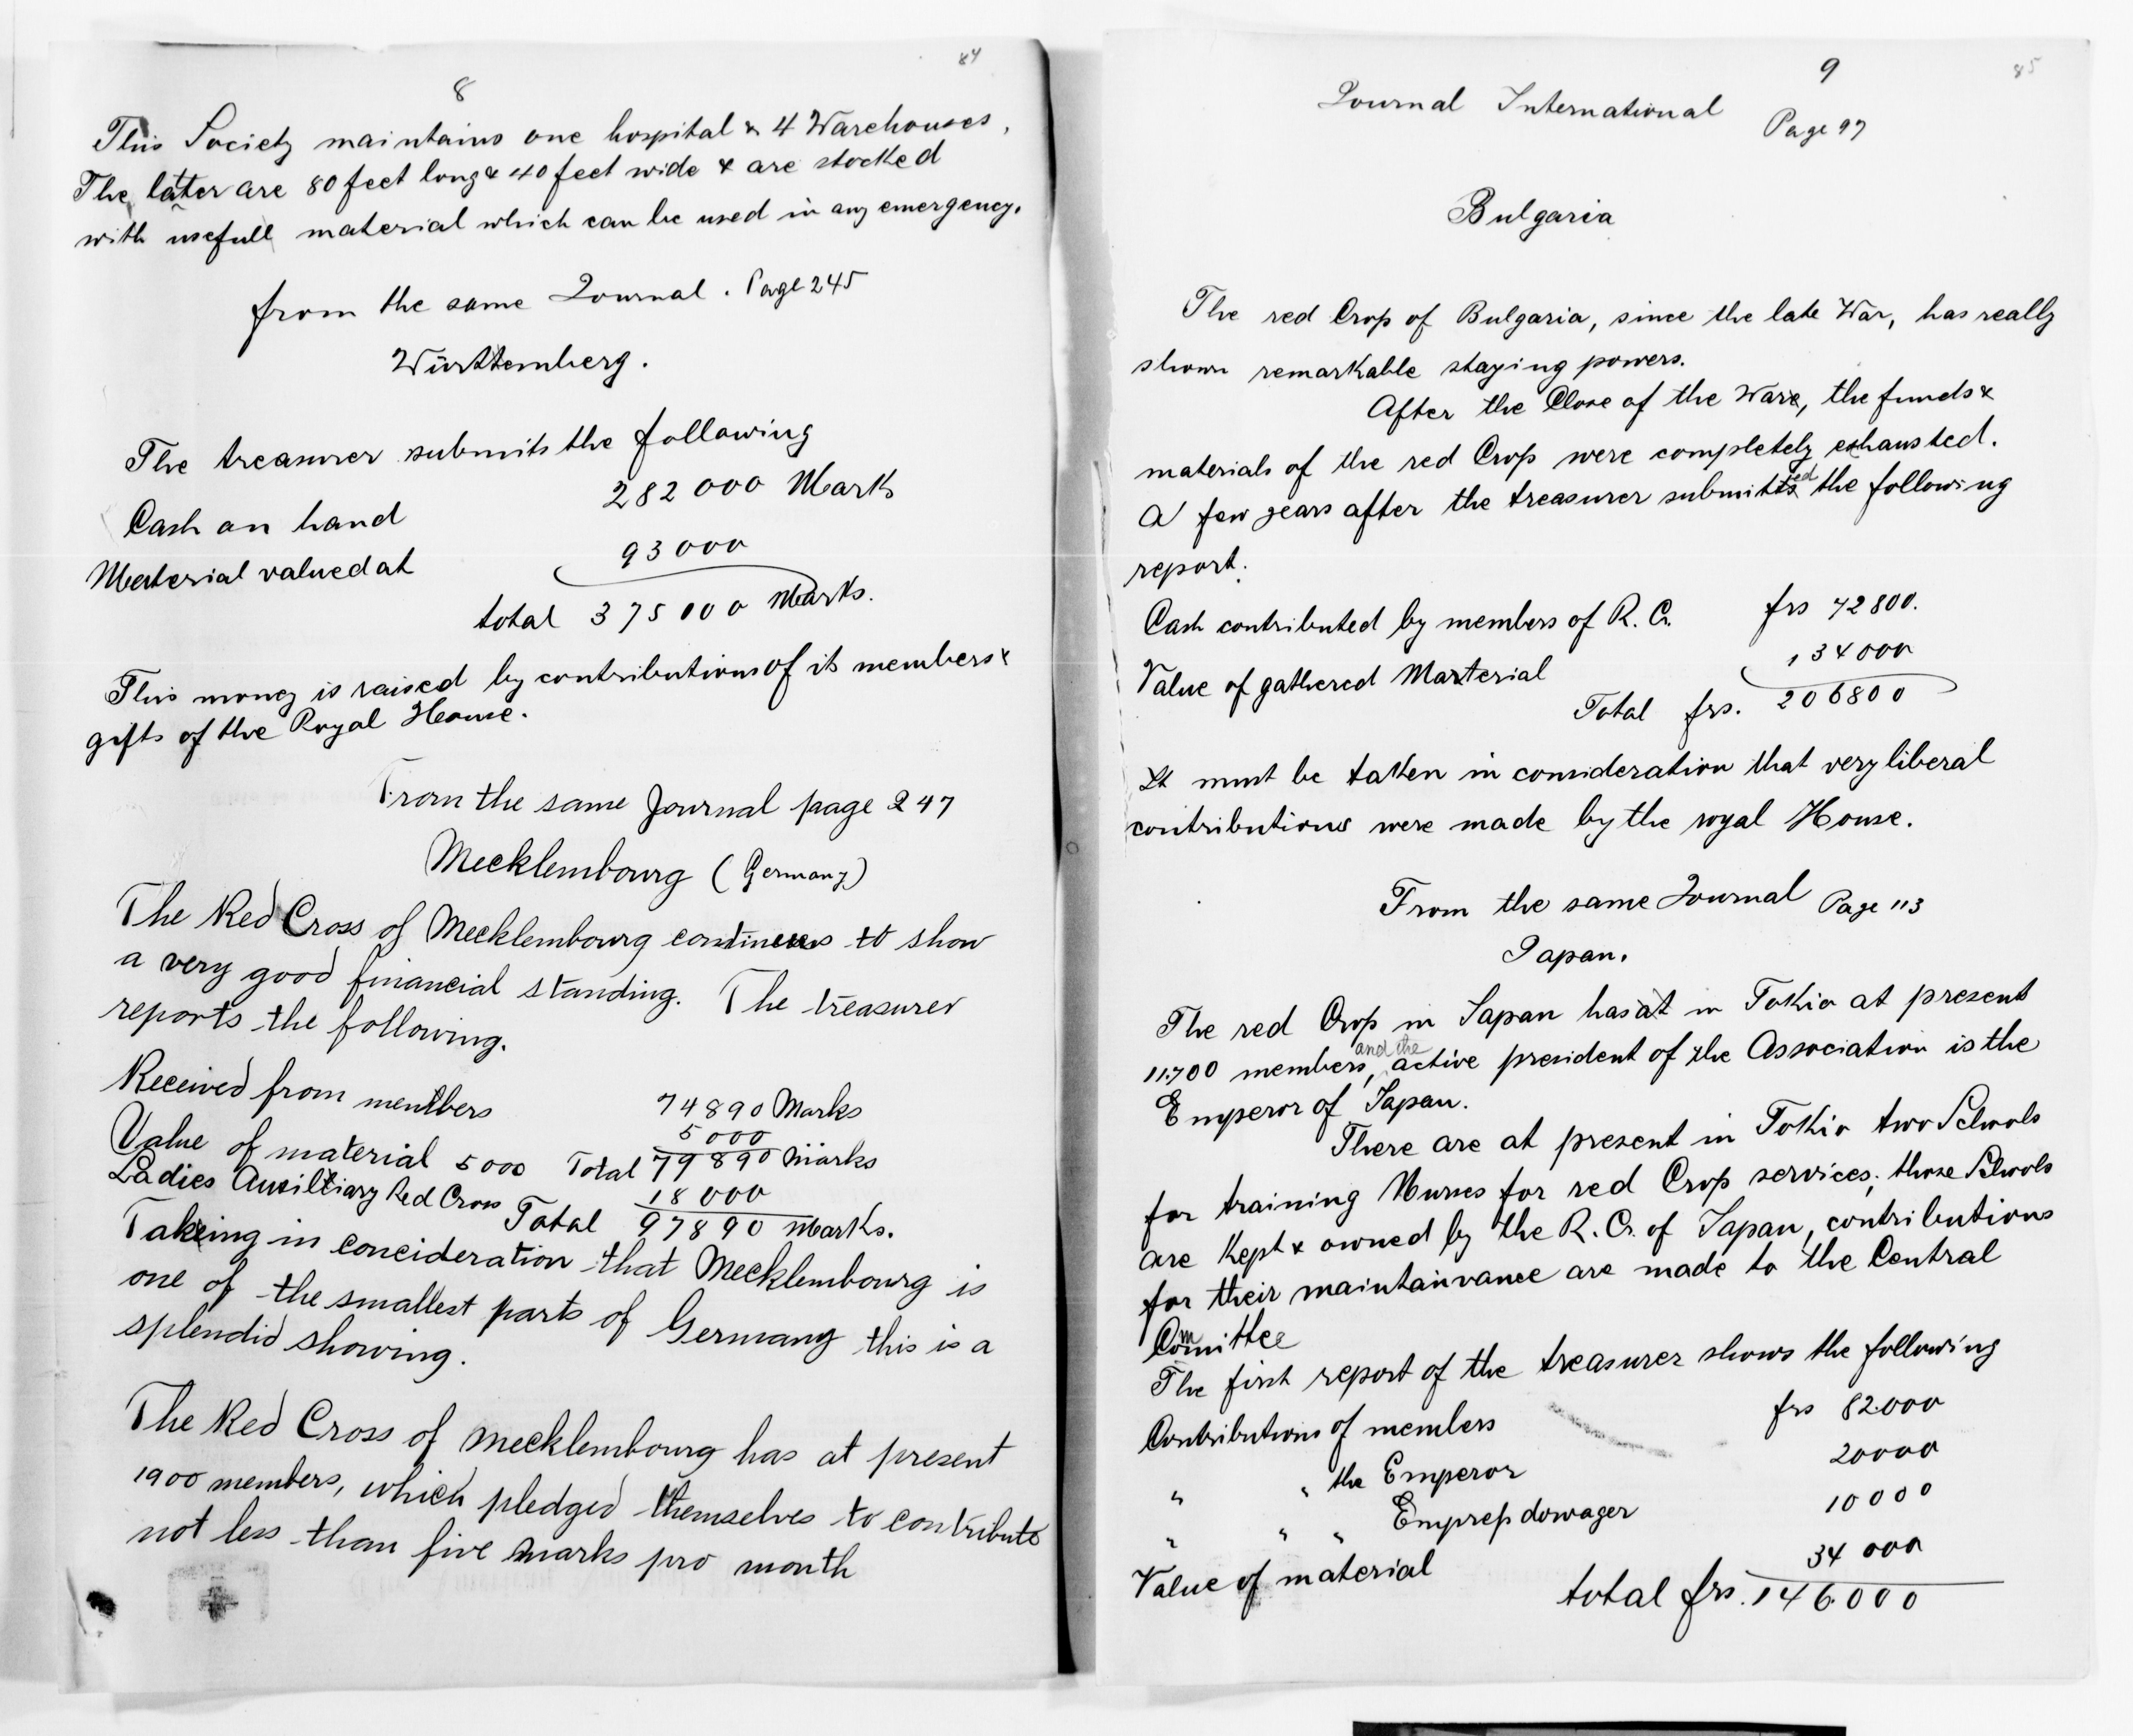 84
8
This Society maintains one hospital & 4 Warehouses,
The latter are 80 feet long & 40 feet wide & are stocked
with usefull material which can be used in any emergency.
from the same Journal. Page 245
Württemberg.
The treasurer submits the following
Cash on hand 282 000 Mark
Material valued at 93 000
total 375 000 Marks.
This money is raised by contributions of its members &
gifts of the Royal House.
From the same Journal page 247
Mecklembourg (Germany)
The Red Cross of Mecklembourg continues to show
a very good financial standing. The treasurer
reports the following.
Received from members 74890 Marks
5000
Value of material 5000 Total 79890 Marks
Ladies Auxiliary Red Cross 18 000
Total 97890 Marks.
Takeing in concideration that Mecklembourg is
one of the smallest parts of Germany this is a
splendid showing.
The Red Cross of Mecklembourg has at present
1900 members, which pledged themselves to contribute
not less than five marks pro month
85
9
Journal International Page 97
Bulgaria
The red Cross of Bulgaria, since the late War, has really
shown remarkable staying powers.
After the Close of the War, the funds &
materials of the red Cross were completely exhausted.
A few years after the treasurer submitted the following
report.
Cash contributed by members of R. Cr. frs 72800.
Value of gathered Material 134000
Total frs. 206800
It must be taken in consideration that very liberal
contributions were made by the royal House.
From the same Journal Page 113
Japan.
The red Cross in Japan has at in Tokio at present
11.700 members, and the active president of the Association is the
Emperor of Japan.
There are at present in Tokio two Schools
for training Nurses for red Cross services; those Schools
are Kept & owned by the R. Cr. of Japan, contributions
for their maintainvance are made to the Central
Committee
The first report of the treasurer shows the following
Contributions of members frs 82.000
" " the Emperor 20000
" " " Empress dowager 10000
Value of material 34 000
total frs. 146.000